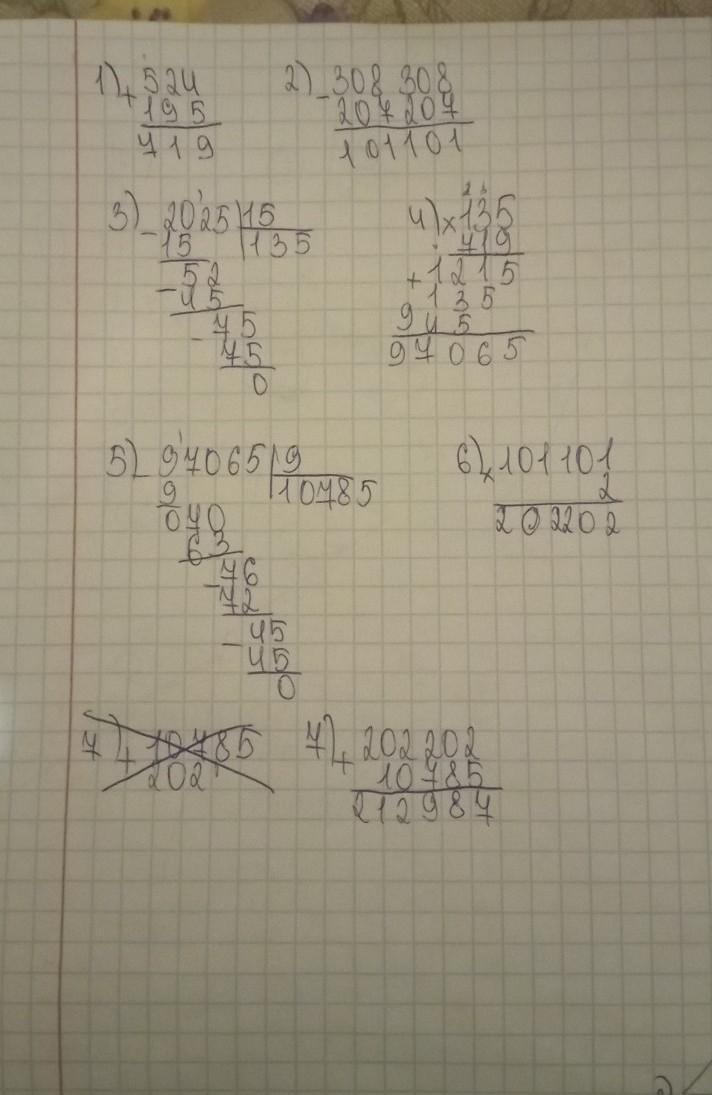 1) + 524
195
719
2) - 308 308
207 207
101101
3) - 2025 | 15
15 | 135
- 52
45
- 75
75
0
4) × 135
719
+ 1215
135
945
97065
5) - 97065 | 9
9 | 10785
070
63
- 76
72
- 45
45
0
6) × 101101
2
202202
7) + 10785
202
7) + 202 202
10785
212987